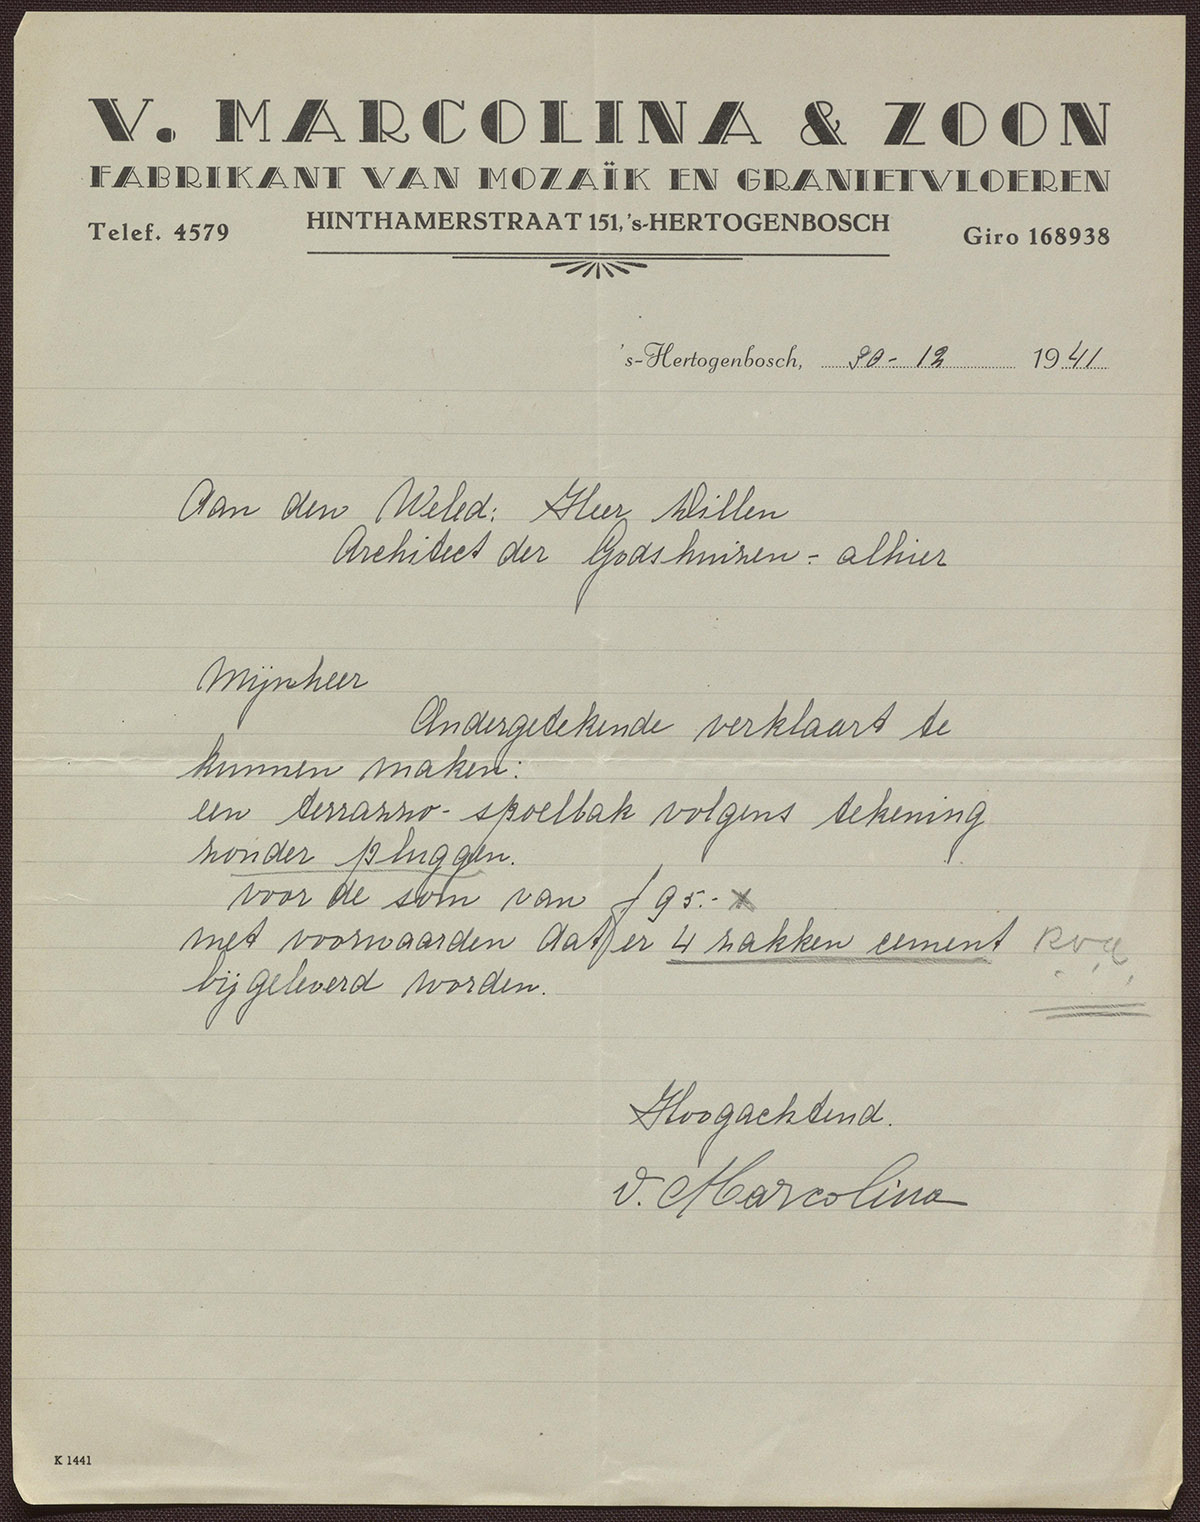 V. MARCOLINA & ZOON
FABRIKANT VAN MOZAÏK EN GRANIETVLOEREN
HINTHAMERSTRAAT 151, 's-HERTOGENBOSCH
Telef. 4579
Giro 168938
's-Hertogenbosch, 30-12 1941
Aan den Weled: Heer Dillen
Architect der Godshuizen - alhier
Mijnheer
Ondergetekende verklaart te
kunnen maken:
een terrazzo-spoelbak volgens tekening
zonder pluggen.
voor de som van f 95.-
met voorwaarden dat er 4 zakken cement
bijgeleverd worden.
Hoogachtend.
V. Marcolina
K 1441